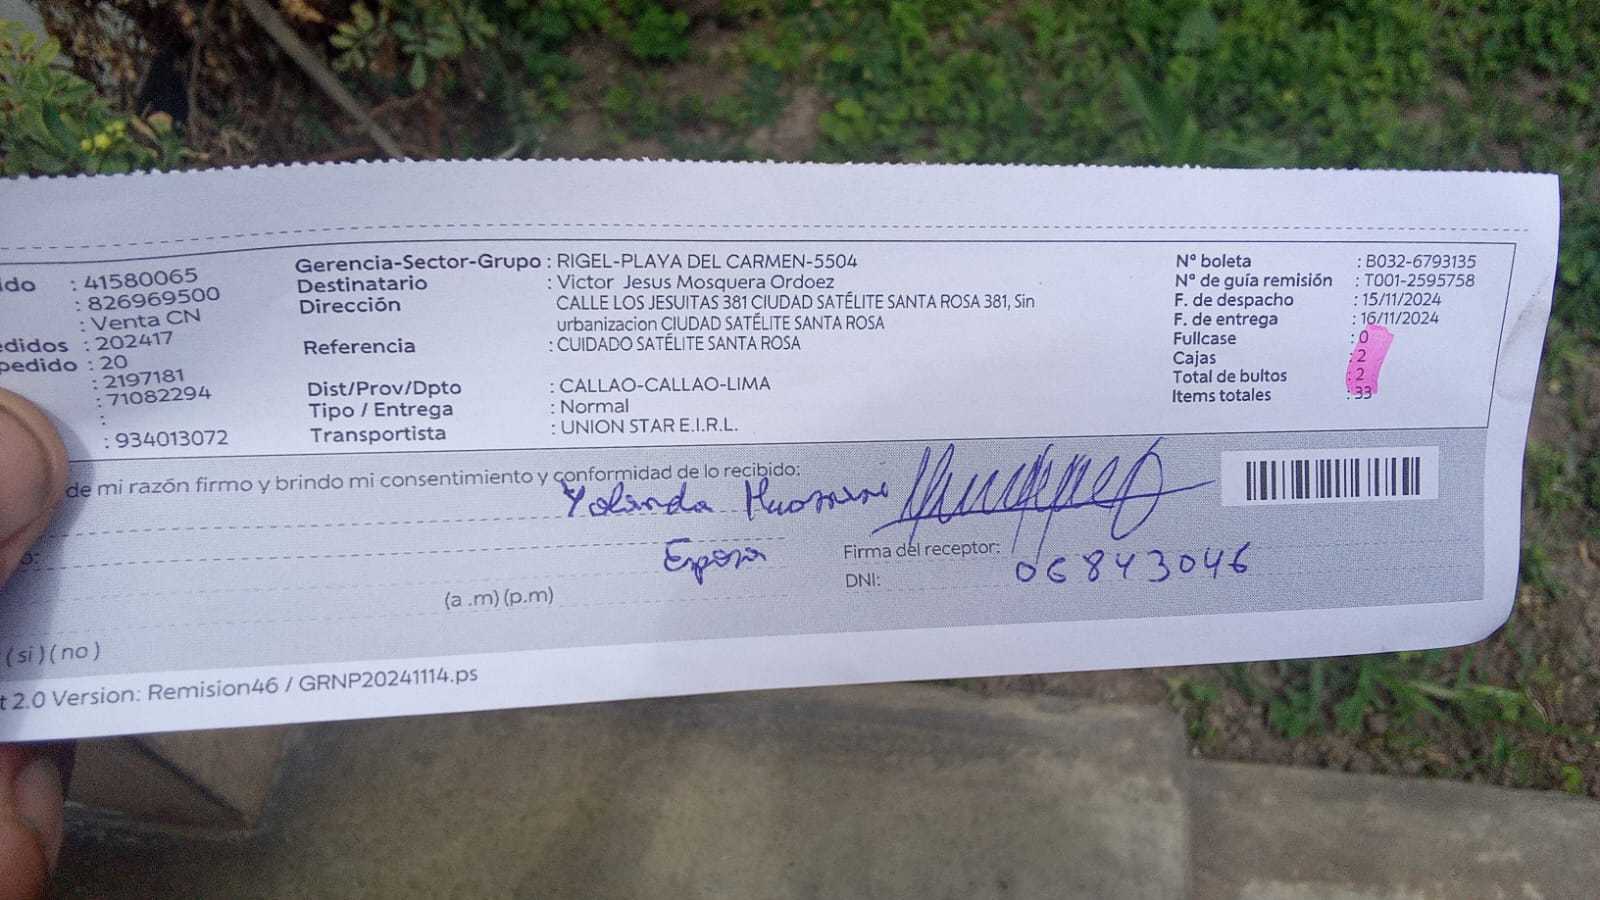 ido : 41580065
: 826969500
: Venta CN
edidos : 202417
pedido : 20
: 2197181
: 71082294
:
: 934013072
Gerencia-Sector-Grupo : RIGEL-PLAYA DEL CARMEN-5504
Destinatario : Victor Jesus Mosquera Ordoez
Dirección CALLE LOS JESUITAS 381 CIUDAD SATÉLITE SANTA ROSA 381, Sin
urbanizacion CIUDAD SATÉLITE SANTA ROSA
Referencia : CUIDADO SATÉLITE SANTA ROSA
Dist/Prov/Dpto : CALLAO-CALLAO-LIMA
Tipo / Entrega : Normal
Transportista : UNION STAR E.I.R.L.
N° boleta : B032-6793135
N° de guía remisión : T001-2595758
F. de despacho : 15/11/2024
F. de entrega : 16/11/2024
Fullcase : 0
Cajas : 2
Total de bultos : 2
Items totales : 33
de mi razón firmo y brindo mi consentimiento y conformidad de lo recibido:
Yolanda
Esposa
Firma del receptor:
DNI: 06843046
(a .m) (p.m)
( si ) ( no )
t 2.0 Version: Remision46 / GRNP20241114.ps